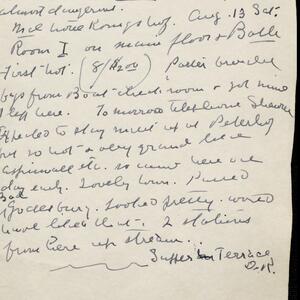 almost dangerous.
Hotel Königshof. Aug. 13 Sat.
Room I on main floor & Bath
First hot. (8/$2.00) Porter
bags from Boat check room & got mine
left here. Tomorrow Telephone
Expected to stay next at Petersberg
but so hot & very grand like
Aspinwall etc. so came here one
day early. Lovely town. Passed
Bad Godesburg. Looked pretty. would
have liked that. 2 stations
from here up stream.
Supper on Terrace
O.K.